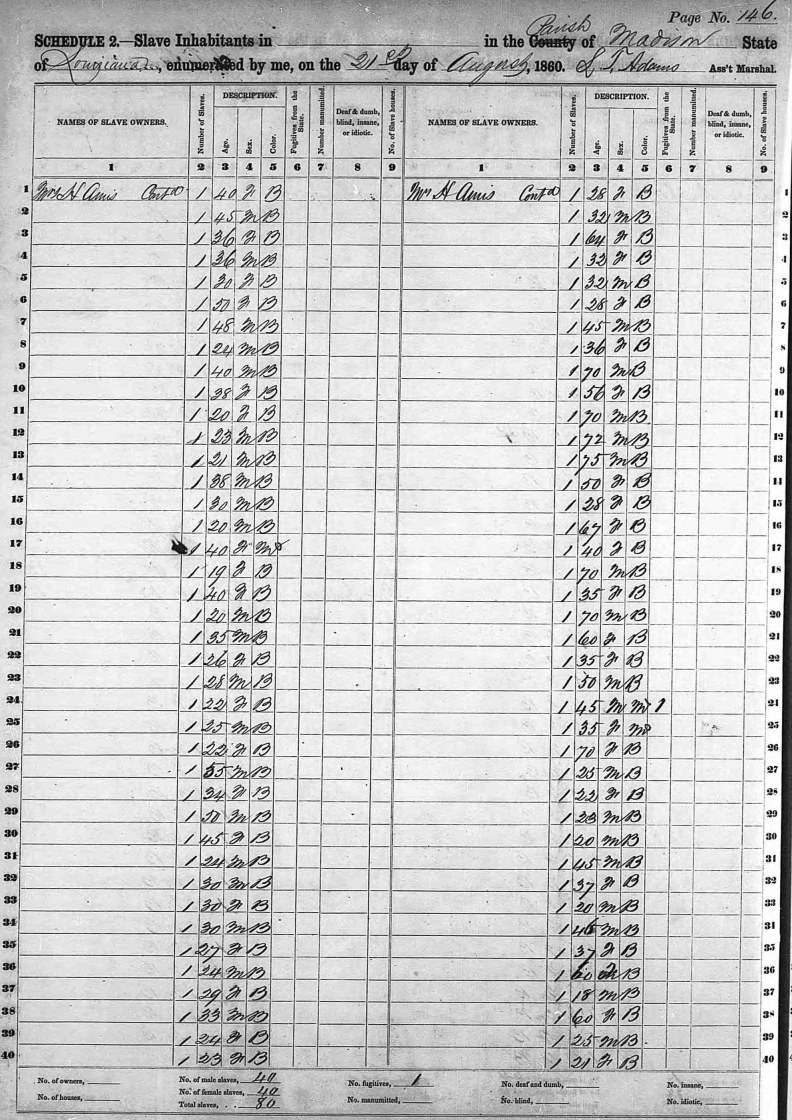 Page No. 146.
SCHEDULE 2.—Slave Inhabitants in in the County Parish of Madison State
of Louisiana, enumerated by me, on the 21st day of August, 1860. S. T. Adams Ass't Marshal.
NAMES OF SLAVE OWNERS. Number of Slaves. DESCRIPTION. Age. Sex. Color. Fugitives from the State. Number manumitted. Deaf & dumb, blind, insane, or idiotic. No. of Slave houses. NAMES OF SLAVE OWNERS. Number of Slaves. DESCRIPTION. Age. Sex. Color. Fugitives from the State. Number manumitted. Deaf & dumb, blind, insane, or idiotic. No. of Slave houses.
1 2 3 4 5 6 7 8 9 1 2 3 4 5 6 7 8 9
1 Mrs H Amis Contd 1 40 F B Mrs H Amis Contd 1 28 F B 1
2 1 45 M B 1 32 M B 2
3 1 36 F B 1 64 F B 3
4 1 36 M B 1 32 F B 4
5 1 30 F B 1 32 M B 5
6 1 50 F B 1 28 F B 6
7 1 48 M B 1 45 M B 7
8 1 24 M B 1 36 F B 8
9 1 40 M B 1 70 M B 9
10 1 38 F B 1 56 F B 10
11 1 20 F B 1 70 M B 11
12 1 23 M B 1 72 M B 12
13 1 21 M B 1 75 M B 13
14 1 38 M B 1 50 F B 14
15 1 30 M B 1 28 F B 15
16 1 20 M B 1 67 F B 16
17 1 40 F M 1 40 F B 17
18 1 19 F B 1 70 M B 18
19 1 40 F B 1 35 F B 19
20 1 20 M B 1 70 M B 20
21 1 35 M B 1 60 F B 21
22 1 26 F B 1 35 F B 22
23 1 28 M B 1 50 M B 23
24 1 22 F B 1 45 M M 1 24
25 1 25 M B 1 35 F M 25
26 1 22 F B 1 70 F B 26
27 1 55 M B 1 25 M B 27
28 1 34 F B 1 22 F B 28
29 1 50 M B 1 23 M B 29
30 1 45 F B 1 20 M B 30
31 1 24 M B 1 45 M B 31
32 1 30 M B 1 37 F B 32
33 1 30 F B 1 20 M B 33
34 1 30 M B 1 M B 34
35 1 27 F B 1 37 F B 35
36 1 24 M B 1 60 B 36
37 1 29 F B 1 18 M B 37
38 1 33 M B 1 60 F B 38
39 1 24 F B 1 25 M B 39
40 1 23 F B 1 21 F B 40
No. of owners, No. of male slaves, 40 No. fugitives, 1 No. of deaf and dumb, No. of insane,
No. of houses, No. of female slaves, 40 No. manumitted, No. of blind, No. of idiotic,
Total slaves, 80